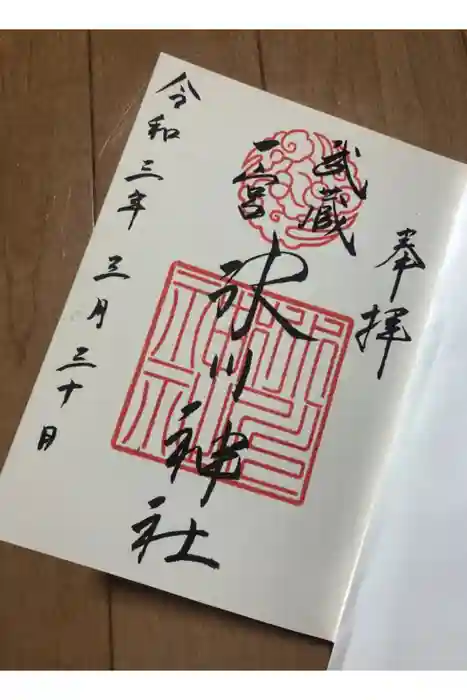 奉拝
武蔵
三宮
氷川神社
令和三年三月三十日